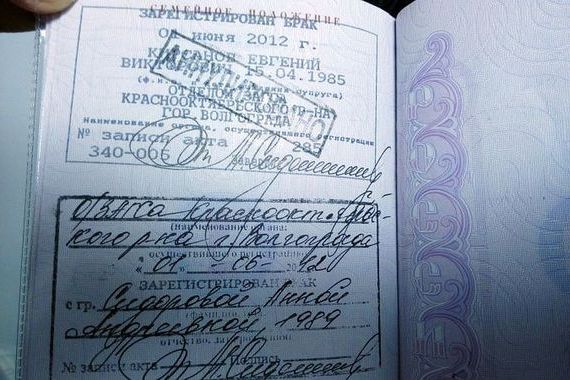 СЕМЕЙНОЕ ПОЛОЖЕНИЕ
ЗАРЕГИСТРИРОВАН БРАК
01 июня 2012 г.
ЕВГЕНИЙ
15.04.1985
супруга)
ОТДЕЛОМ ЗАГСА
КРАСНООКТЯБРЬСКОГО Р-НА
ГОР. ВОЛГОГРАДА
Наименование органа, осуществившего регистрацию
№ записи акта 285
340-006
О/ЗАГСа Краснооктябрьс-
(наименование органа,
кого р-на г. Волгограда
осуществившего регистрацию)
" 01 " - 06 - 2012
ЗАРЕГИСТРИРОВАН БРАК
с гр. Сидоровой Анной
Андреевной, 1989
отчество, дата рождения)
№ записи акта Подпись